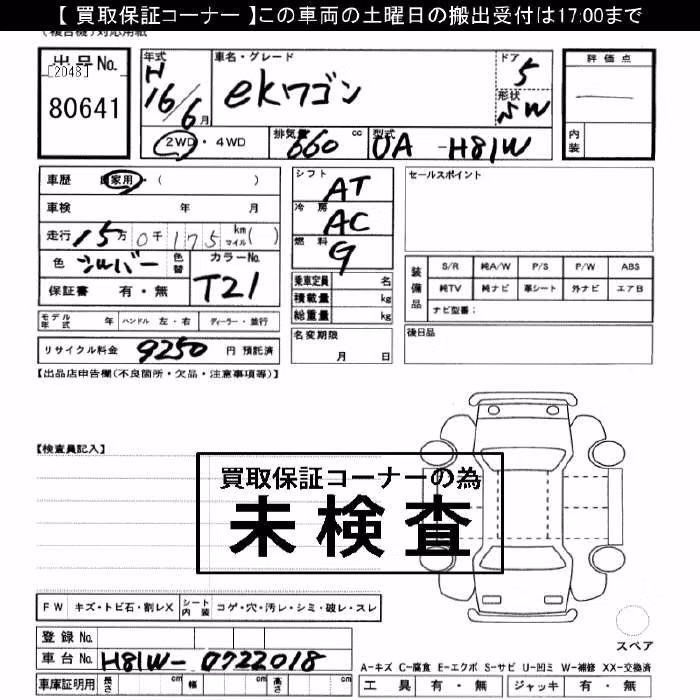 【 買取保証コーナー 】この車両の土曜日の搬出受付は17:00まで
(複合機)対応用紙
出品No.
[2048]
80641
年式
H
16/6月
車名・グレード
ekワゴン
ドア
5
形状
SW
評価点
内装
2WD・4WD
排気量
660
cc
型式
UA -H81W
車歴 自家用・( )
車検 年 月
走行 15万0千175 km マイル( )
色 シルバー
色替
カラーNo.
T21
保証書 有・無
シフト
AT
冷房
AC
燃料
G
乗車定員 名
積載量 kg
総重量 kg
セールスポイント
装備品
S/R 純A/W P/S P/W ABS
純TV 純ナビ 革シート 外ナビ エアB
ナビ型番:
モデル年式 年 ハンドル 左・右 ディーラー・並行
リサイクル料金 9250 円 預託済
名変期限
月 日
後日品
【出品店申告欄(不良箇所・欠品・注意事項等)】
【検査員記入】
買取保証コーナーの為
未検査
FW キズ・トビ石・割レX
シート内装 コゲ・穴・汚レ・シミ・破レ・スレ
スペア
登録No.
車台No. H81W-0722018
車庫証明用 長さ cm 幅 cm 高さ cm
A-キズ C-腐食 E-エクボ S-サビ U-凹ミ W-補修 XX-交換済
工具 有・無 ジャッキ 有・無